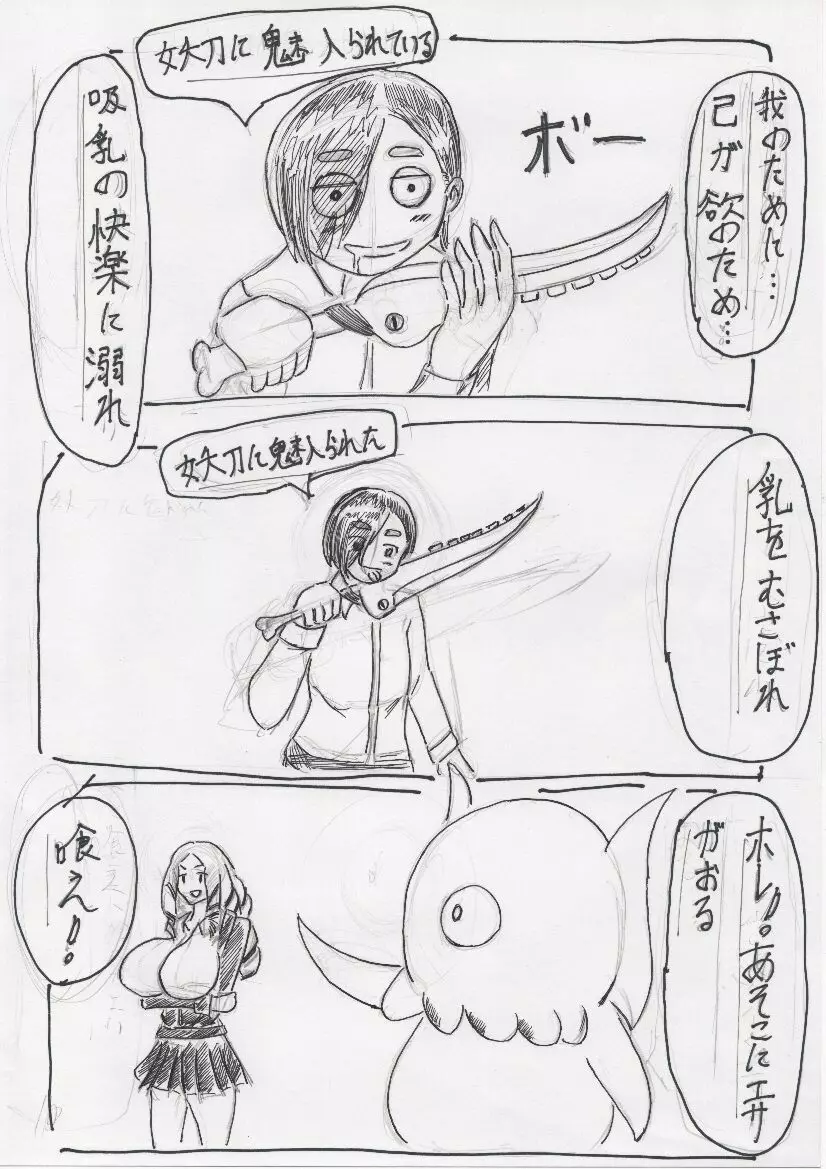 我のために…
己が欲のため…
ボー
妖刀に魅入られている
吸乳の快楽に溺れ
乳をむさぼれ
妖刀に魅入られた
ホレ!。あそこにエサ
がおる
喰え!。